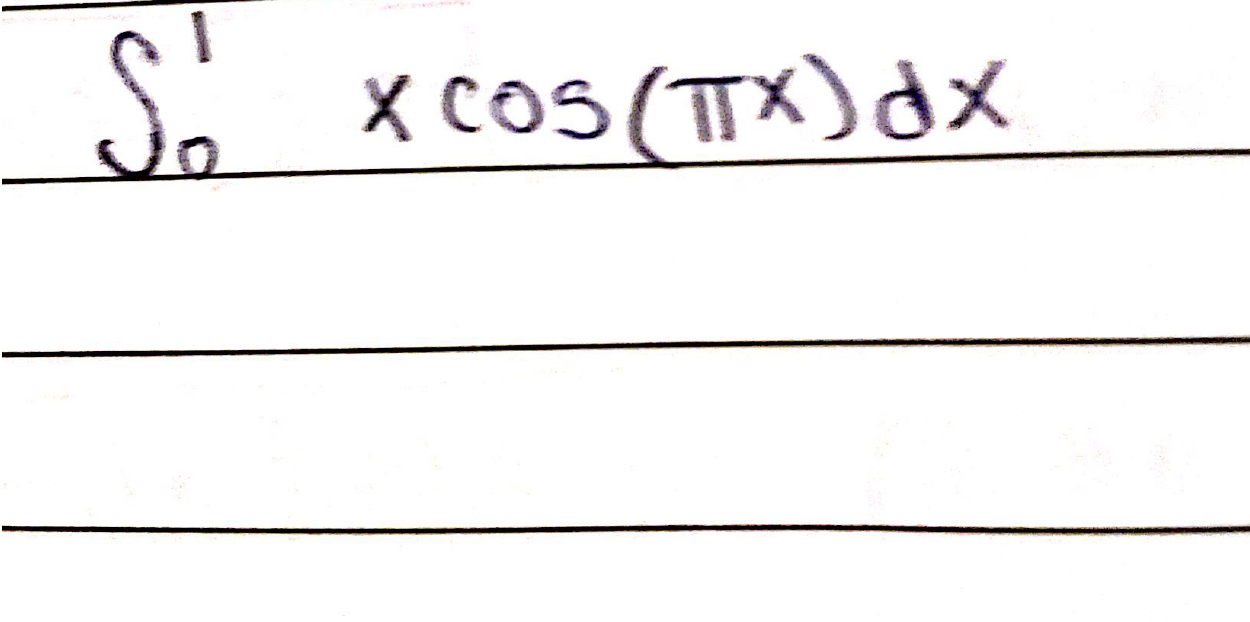 ∫₀¹ x cos(πx)dx